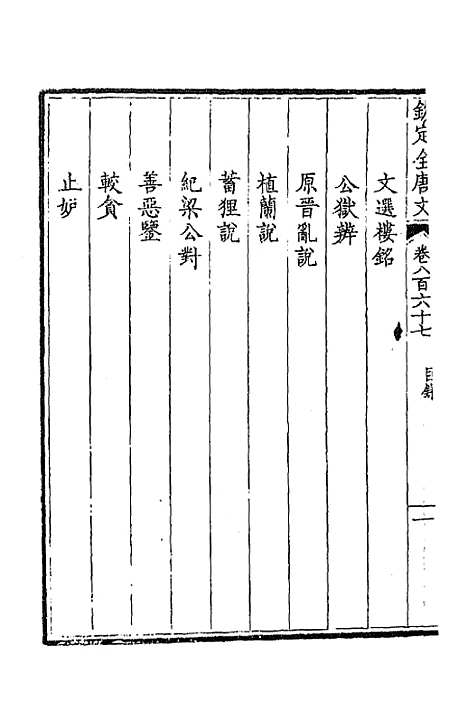 欽定全唐文 卷八百六十七 目錄 一
文選樓銘
公獄辨
原晉亂說
植蘭說
蓄狸說
紀梁公對
善惡鑒
較貪
止妒